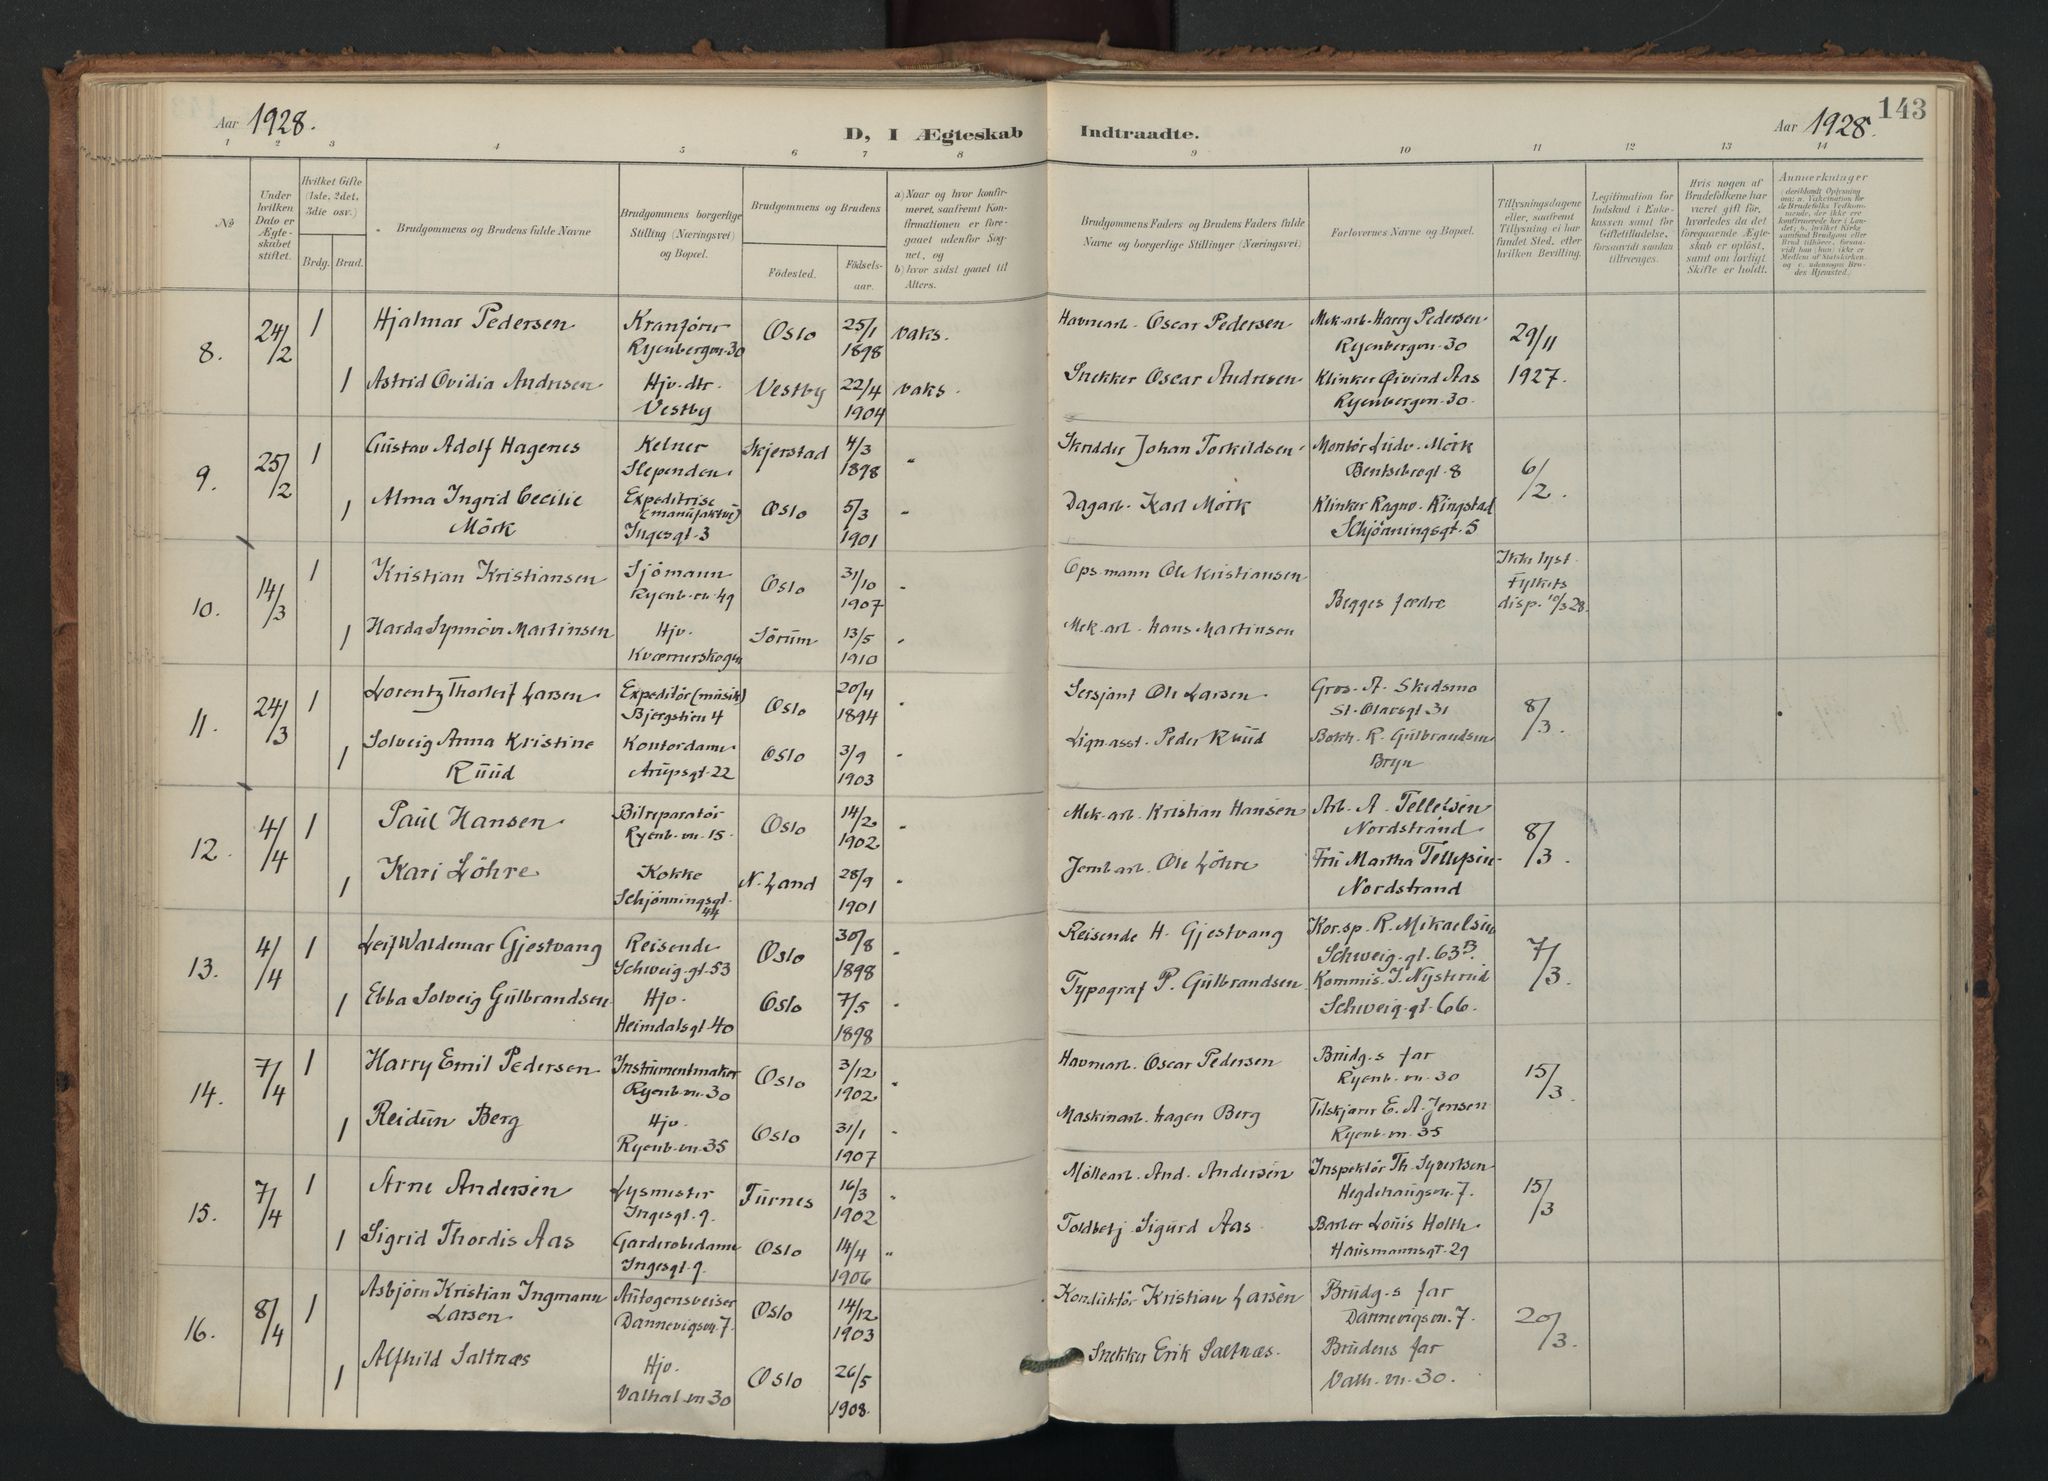 143
Aar 1928. D, I Ægteskab Indtraadte. Aar 1928.
1 2 3 4 5 6 7 8 9 10 11 12 13 14
No
Under hvilken Dato er Ægteskabet stiftet.
Hvilket Gifte (1ste, 2det, 3die osv.)
Brdg. Brud.
Brudgommens og Brudens fulde Navne
Brudgommens borgerlige Stilling (Næringsvei) og Bopæl.
Brudgommens og Brudens
Födested.
Födsels-aar.
a) Naar og hvor konfirmeret, saafremt Konfirmationen er foregaaet udenfor Sognet, og
b) hvor sidst gaaet til Alters.
Brudgommens Faders og Brudens Faders fulde Navne og borgerlige Stillinger (Næringsvei)
Forlovernes Navne og Bopæl.
Tillysningsdagene eller, saafremt Tillysning ei har fundet Sted, efter hvilken Bevilling.
Legitimation for Indskud i Enkekassen samt for Giftetilladelse, forsaavidt saadan tiltrænges.
Hvis nogen af Brudefolkene har været gift før, hvorledes da det foregaaende Ægteskab er opløst, samt om lovligt Skifte er holdt.
Anmærkninger
8. 24/2 1 Hjalmar Pedersen Kranförer Ryenbergvn. 30 Oslo 25/1 1898 vaks. Havnearb. Oscar Pedersen Mek. arb. Harry Pedersen Ryenbergvn. 30 29/11 1927.
1 Astrid Ovidia Andresen Hjv. dtr. Vestby Vestby 22/4 1904 vaks. Snekker Oscar Andresen Klinker Øivind Aas Ryenbergvn. 30.
9. 25/2 1 Gustav Adolf Hagenes Kelner Slependen. Skjerstad 4/3 1898 " Skredder Johan Torkildsen Montör Ludv. Mörk Bentsebrogt. 8 6/2.
1 Alma Ingrid Cecilie Mörk Expeditrise (manufaktur) Ingesgt. 3 Oslo 5/3 1901 " Dagarb. Karl Mörk Klinker Ragnv. Ringstad Schjönningsgt. 5
10. 14/3 1 Kristian Kristiansen Sjömann Ryenb. vn. 49 Oslo 31/10 1907 " Ops.mann Ole Kristiansen Begges fedre Ikke lyst. Fylkets disp. 10/3 28.
1 Harda Synnöve Martinsen Hjv. Kværnerskogen Sörum 13/5 1910 " Mek. arb. Hans Martinsen
11. 24/3 1 Lorentz Thorleif Larsen Expeditör (musik) Bjergstien 4 Oslo 20/4 1894 " Sersjant Ole Larsen Gros. A. Skedsmo St. Olavsgt. 31 8/3.
1 Solveig Anna Kristine Ruud Kontordame Arupsgt. 22 Oslo 3/9 1903 " Lign. asst. Peder Ruud Bokh. R. Gulbrandsen Bryn
12. 4/4 1 Paul Hansen Bilreparatør Ryenb. vn. 15. Oslo 14/2 1902 " Mek. arb. Kristian Hansen Arb. A. Tellefsen Nordstrand 8/3.
1 Kari Löhre Kokke Schjönningsgt. 44 N. Land 28/9 1901 " Jernb arb. Ole Löhre Fru Martha Tellefsen Nordstrand
13. 4/4 1 Leif Waldemar Gjestvang Reisende Schweig. gt. 53 Oslo 30/8 1898 " Reisende H. Gjestvang Kor.sp. R. Mikaelsen Schweig. gt. 63B. 7/3.
1 Ebba Solveig Gulbrandsen Hjv. Heimdalsgt. 40 Oslo 7/5 1898 " Typograf P. Gulbrandsen Kommis. J. Nysterud Schweig. gt. 66.
14. 7/4 1 Harry Emil Pedersen Instrumentmaker Ryenb. vn. 30 Oslo 3/12 1902 " Havnearb. Oscar Pedersen Brudg. s far Ryenb. vn. 30 15/3.
1 Reidun Berg Hjv. Ryenb. vn. 35 Oslo 31/1 1907 " Maskinarb. Hagen Berg Tilskjærer E. A. Jensen Ryenb. vn. 35
15. 7/4 1 Arne Andersen Lysmester Ingesgt. 9. Furnes 16/3 1902 " Mölleart. And. Andersen Inspektör Th. Syvertsen Hegdehaugsvn. 7. 15/3
1 Sigrid Thordis Aas Garderobedame Ingesgt. 9. Oslo 14/4 1906 " Toldbetj. Sigurd Aas. Barber Louis Holth Hausmannsgt. 29
16. 8/4 1 Asbjörn Kristian Ingmann Larsen Autogensveiser Dannevigsvn. 7. Oslo 14/12 1903 Konduktör Kristian Larsen Brudg. s far Dannevigsvn. 7. 20/3.
1 Alfhild Saltnæs Hjv. Valhal. vn 30 Oslo 26/5 1908. Snekker Erik Saltnæs. Brudens far Valh. vn. 30.